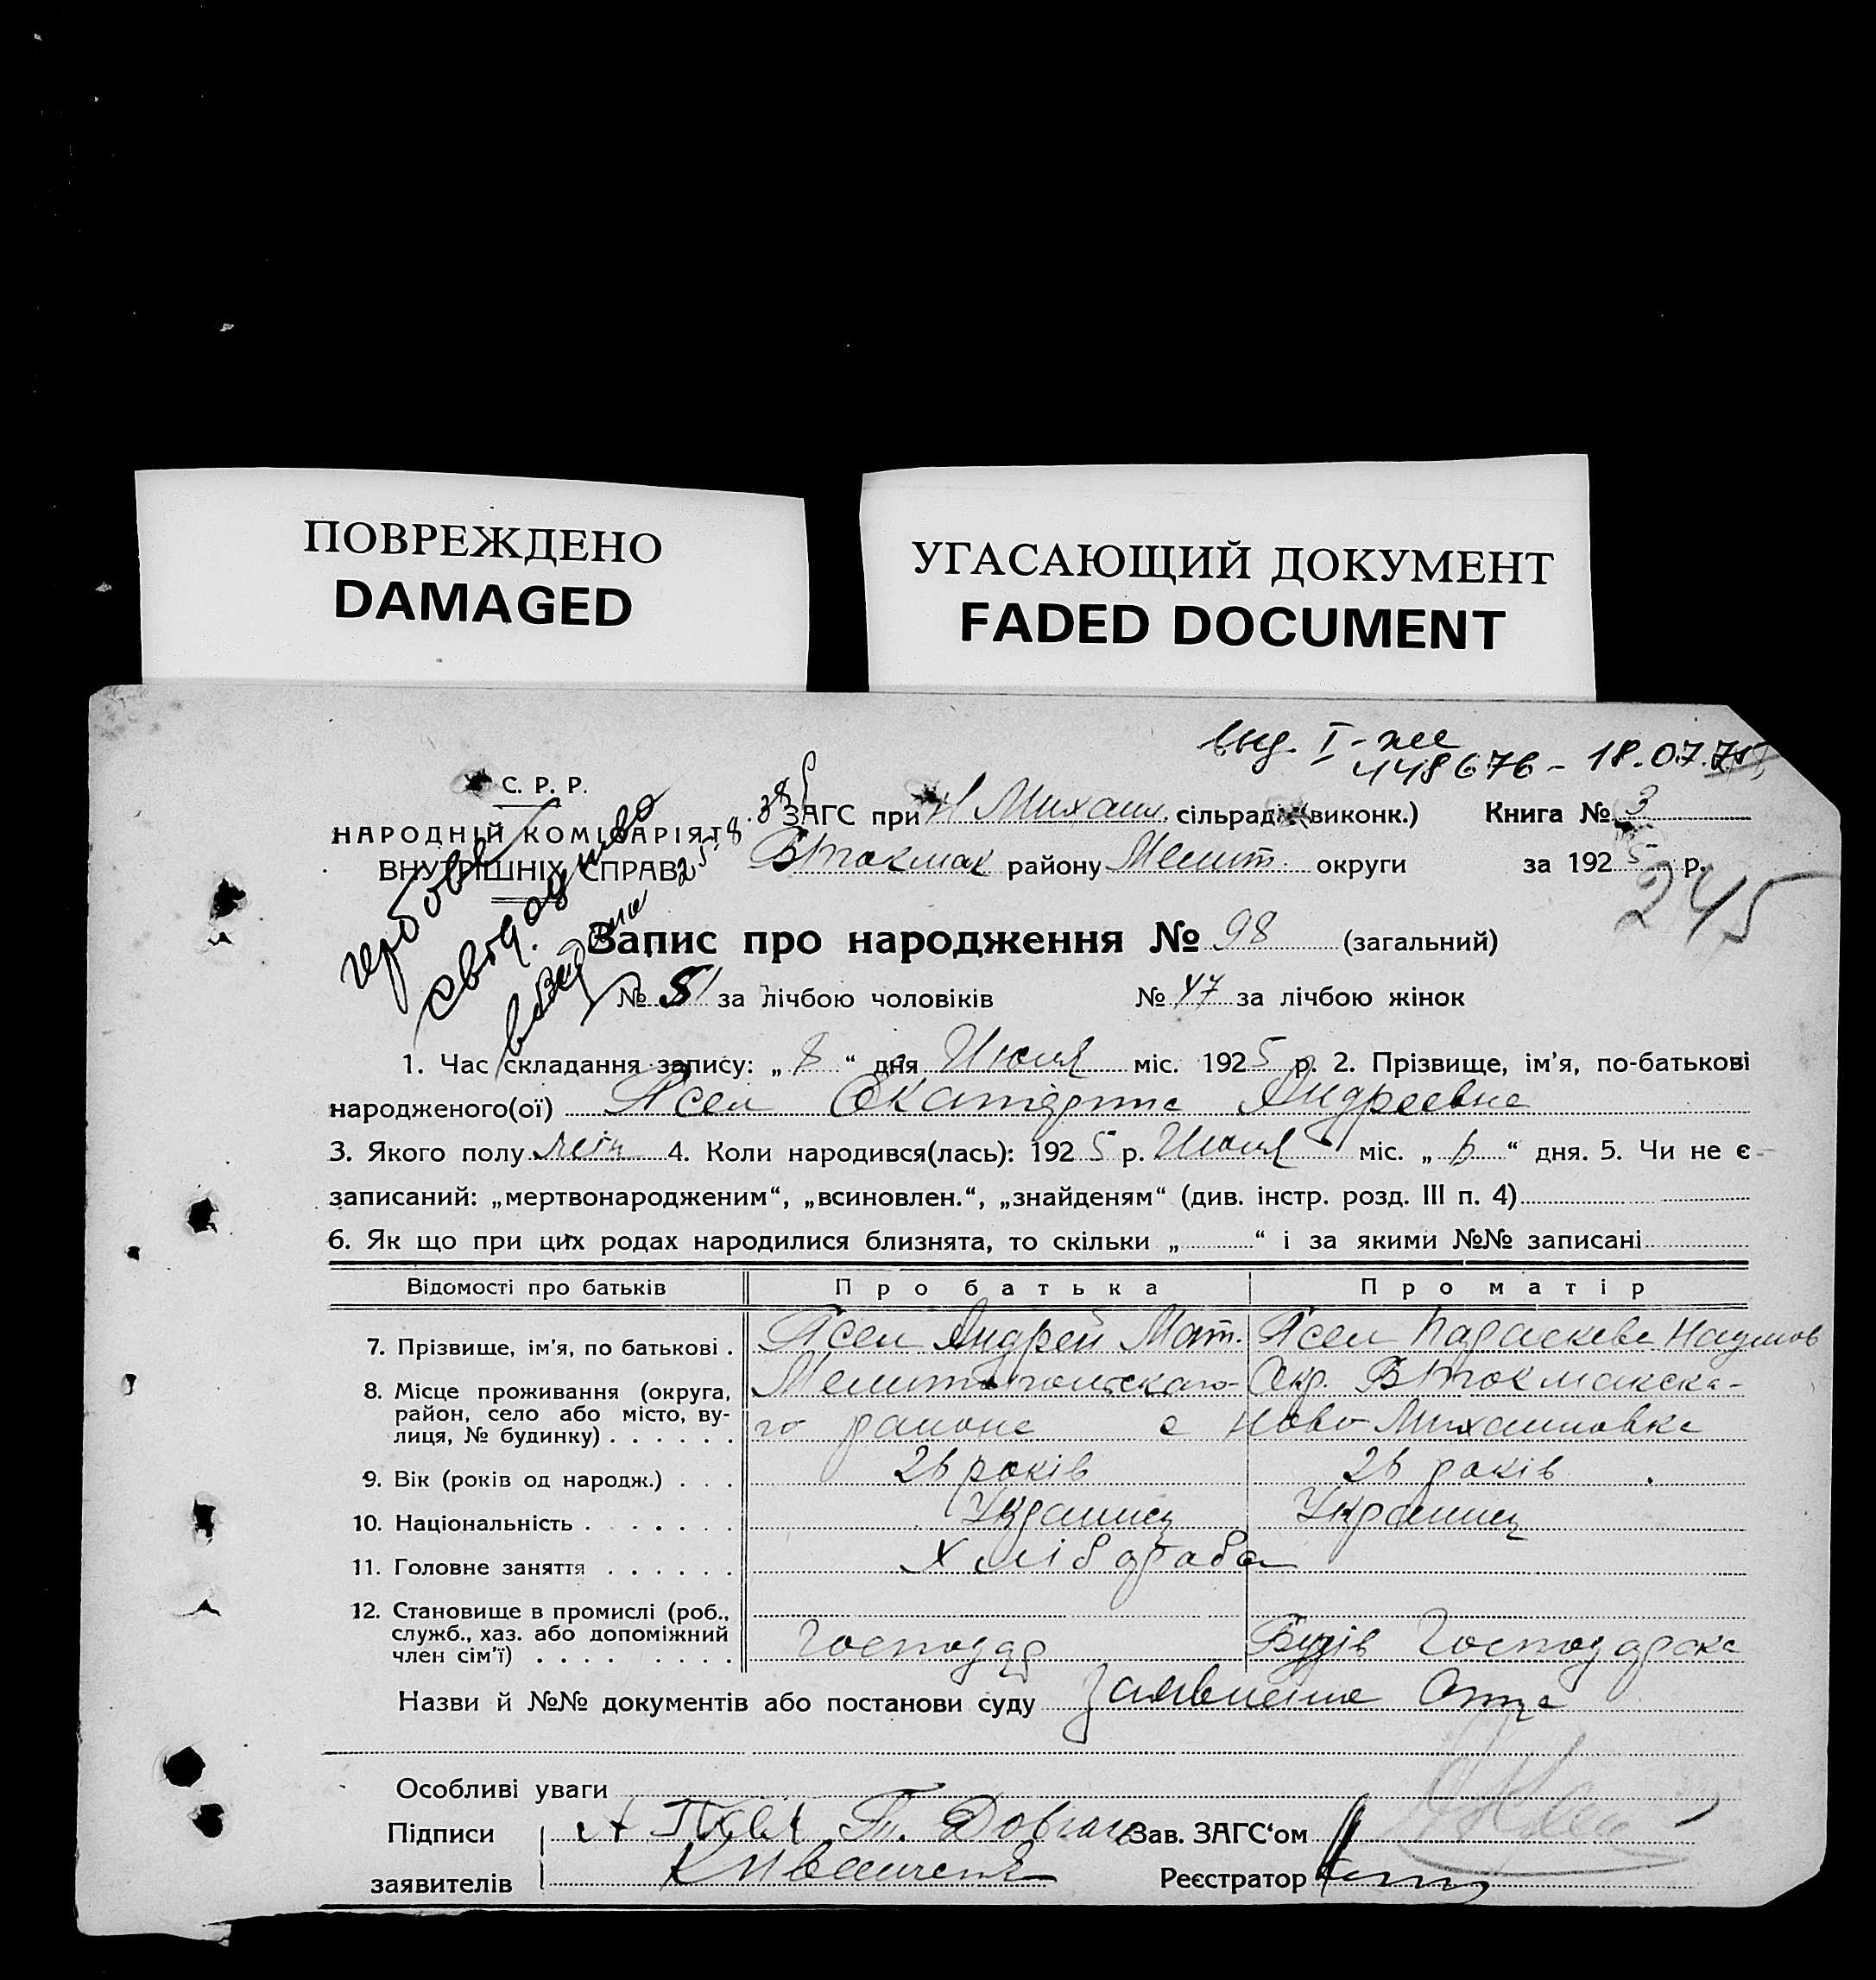 ПОВРЕЖДЕНО
DAMAGED
УГАСАЮЩИЙ ДОКУМЕНТ
FADED DOCUMENT
выд. I-
448676 - 18.07.
С. Р. Р.
НАРОДНІЙ КОМІСАРІЯТ
ВНУТРІШНІХ СПРАВ
ЗАГС при Н Михаил. сільраді (виконк.) Книга № 3
ВТокмак району Мелит. округи за 1925 р.
245
Запис про народження № 98 (загальний)
№ 51 за лічбою чоловіків № 47 за лічбою жінок
1. Час складання запису: „ 8 “ дня Июля міс. 1925 р. 2. Прізвище, ім’я, по-батькові
народженого(ої) Псел Екатерина Андреевна
3. Якого полу жін 4. Коли народився(лась): 1925 р. Июля міс. „ 6 “ дня. 5. Чи не є
записаний: „мертвонародженим“, „всиновлен.“, „знайденям“ (див. інстр. розд. III п. 4)
6. Як що при цих родах народилися близнята, то скільки „ “ і за якими №№ записані
Відомості про батьків Про батька Про матір
7. Прізвище, ім’я, по батькові . Псел Андрей Мат. Псел Параскева Наумов
8. Місце проживання (округа, Мелитопольскаго Окр. ВТокмакска-
район, село або місто, ву-
лиця, № будинку) . . . . . . го района с Ново-Михайловка
9. Вік (років од народж.) . . . 26 років 26 років
10. Національність . . . . . . Украинец Украинец
11. Головне заняття . . . . . . Хліборобі
12. Становище в промислі (роб.,
служб., хаз. або допоміжний
член сім’ї) . . . . . . . . Господар Господарска
Назви й №№ документів або постанови суду Заявление Отца
Особливі уваги
Підписи А Псел Т. Довгаль Зав. ЗАГС‘ом
заявителів Реєстратор